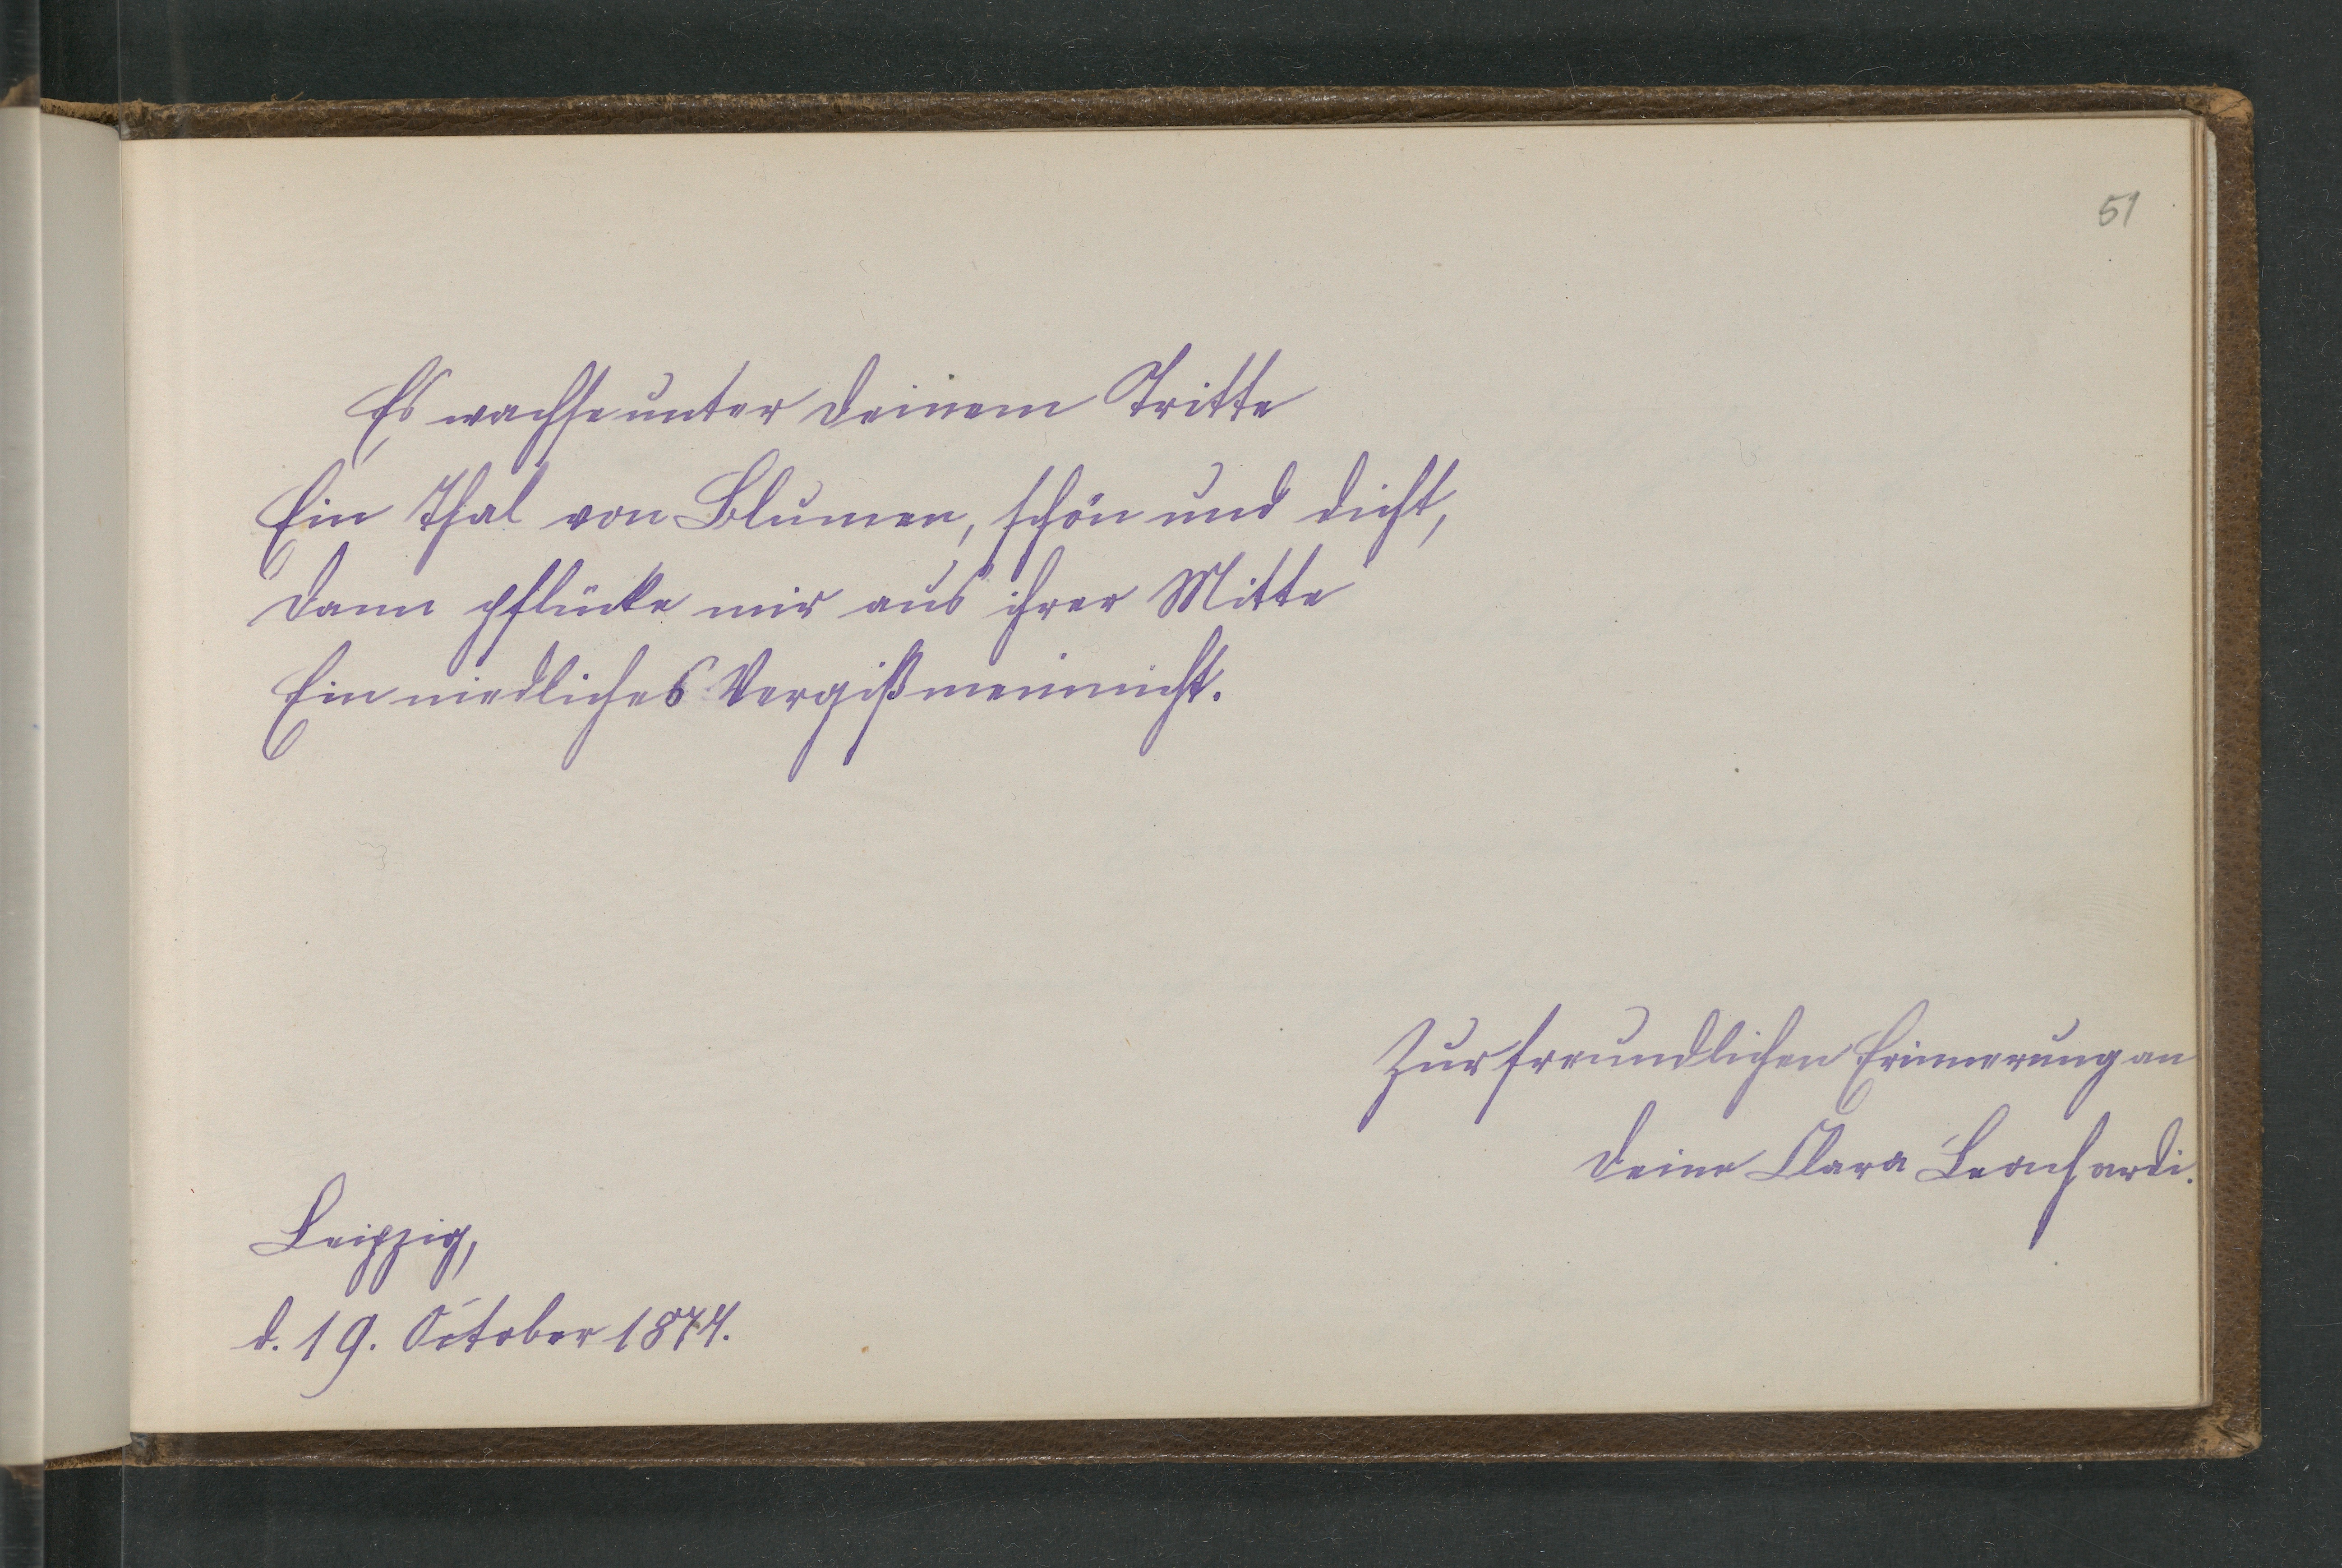 51
Es wachse unter deinem Tritte
Ein Thal von Blumen, schön und dicht,
Dann pflücke mir aus ihrer Mitte
Ein niedliches Vergißmeinnicht.
Zur freundlichen Erinnerung an
deine Clara Leonhardi.
Leipzig,
d. 19. October 1874.